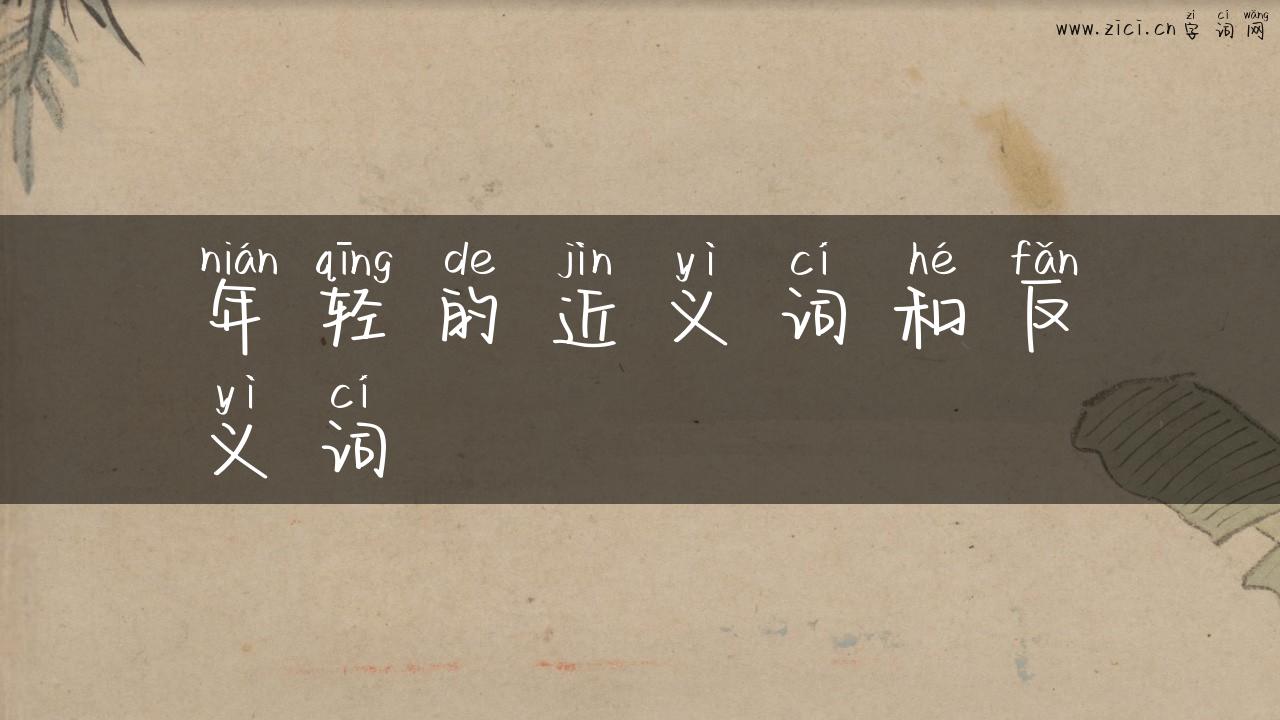 www.zici.cn 字词网
zì cí wǎng
nián qīng de jìn yì cí hé fǎn
年轻的近义词和反
yì cí
义词